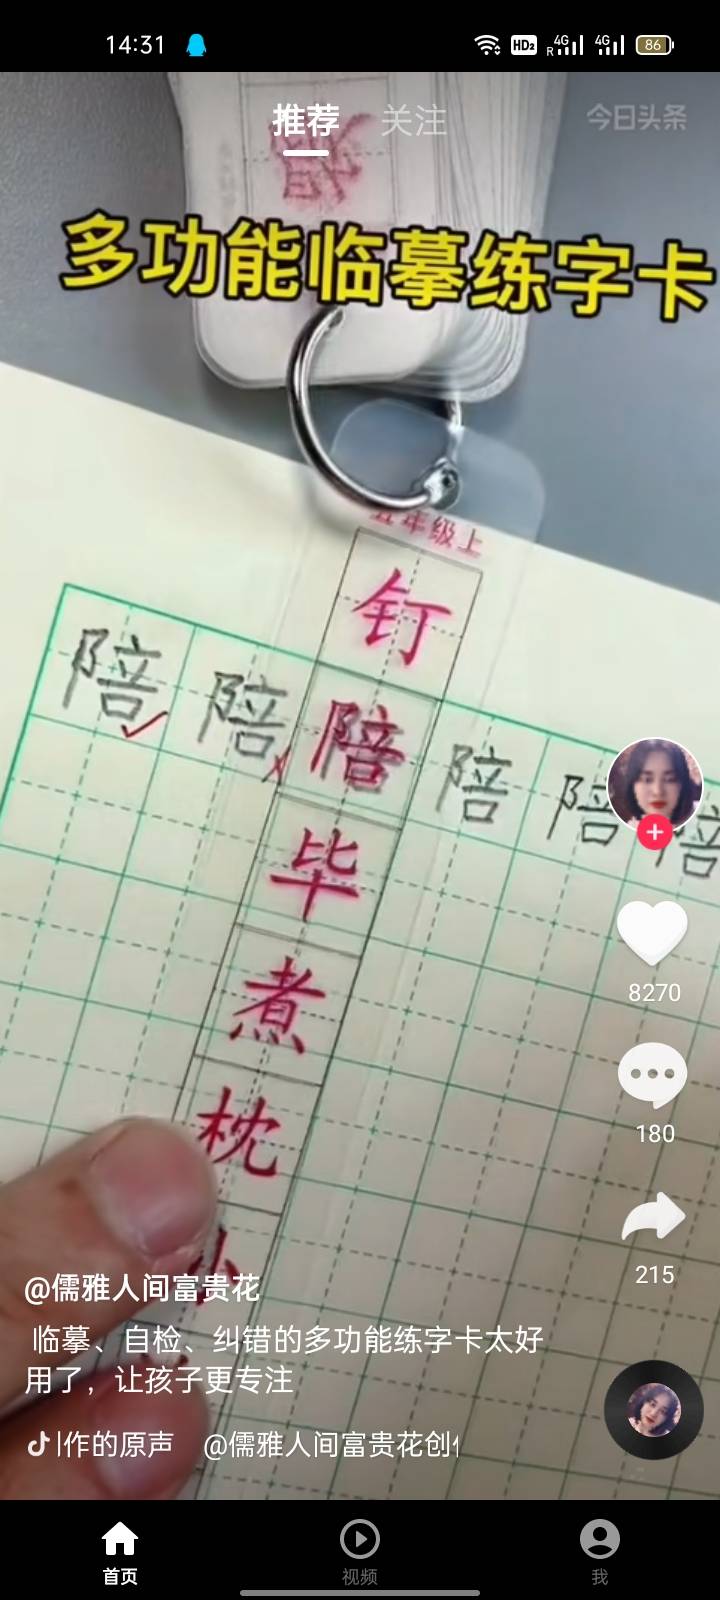 14:31
HD2 R 4G 4G 86
推荐 关注 今日头条
多功能临摹练字卡
五年级上
钉
陪 陪 陪 陪 陪 陪
毕
煮
枕
小
8270
180
215
@儒雅人间富贵花
临摹、自检、纠错的多功能练字卡太好
用了，让孩子更专注
作的原声 @儒雅人间富贵花创作
首页 视频 我